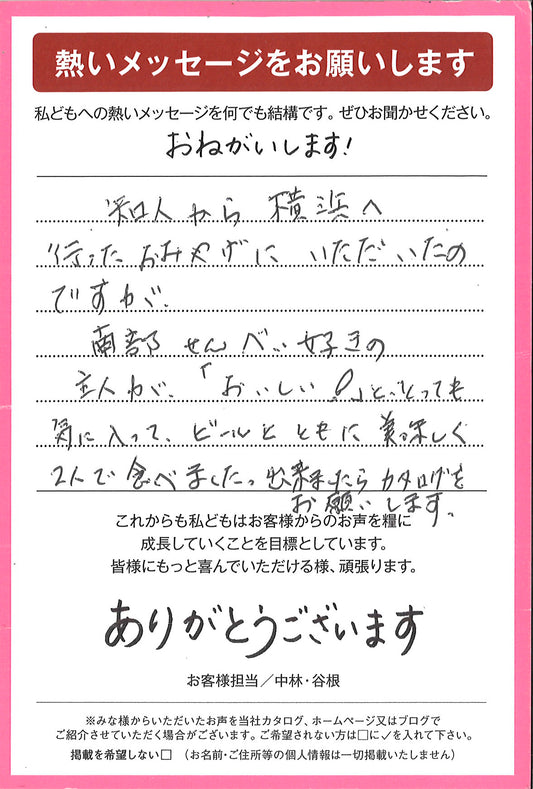 熱いメッセージをお願いします
私どもへの熱いメッセージを何でも結構です。ぜひお聞かせください。
おねがいします!
知人から横浜へ
行ったおみやげに いただいたの
ですが、
南部せんべい好きの
主人が、「おいしい!」と、とっても
気に入って、ビールとともに美味しく
2人で食べました。出来ましたらカタログを
お願いします。
これからも私どもはお客様からのお声を糧に
成長していくことを目標としています。
皆様にもっと喜んでいただける様、頑張ります。
ありがとうございます
お客様担当/中林・谷根
※みな様からいただいたお声を当社カタログ、ホームページ又はブログで
ご紹介させていただく場合がございます。ご希望されない方は□に✓を入れて下さい。
掲載を希望しない□ (お名前・ご住所等の個人情報は一切掲載いたしません)